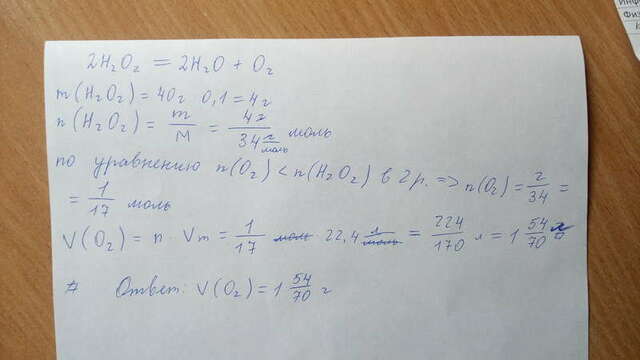 Инф
Физ
2H₂O₂ = 2H₂O + O₂
m(H₂O₂) = 40г · 0,1 = 4г
n(H₂O₂) = m/M = 4г/34 г/моль моль
по уравнению n(O₂) < n(H₂O₂) в 2р. => n(O₂) = 2/34 =
= 1/17 моль
V(O₂) = n · Vm = 1/17 моль · 22,4 л/моль = 224/170 л = 1 54/70
Ответ: V(O₂) = 1 54/70 г